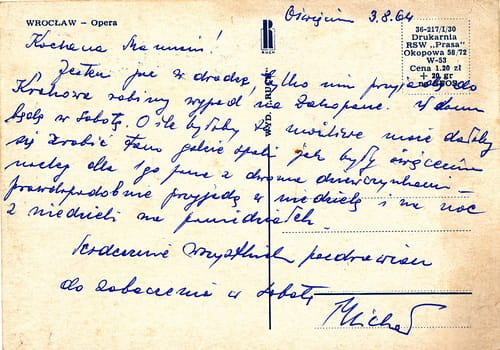 WROCŁAW – Opera
Oświęcim 3.8.64
36-217/I/30
Drukarnia
RSW „Prasa"
Okopowa 58/72
W-53
Cena 1.20 zł
+ 20 gr
WYD. „RUCH"
Kochana Mamusiu!
Jestem już w drodze. Jak
Krakowa robimy wypad na Zakopane. W domu
będę w sobotę. O ile byłoby to możliwe może dałoby
się zrobić tam gdzie spali jak były
nocleg dla tego pana z dwoma dziewczynkami –
prawdopodobnie przyjadą w niedzielę i na noc
z niedzieli na poniedziałek.
Serdecznie wszystkich pozdrawiam
do zobaczenia w sobotę
Michał